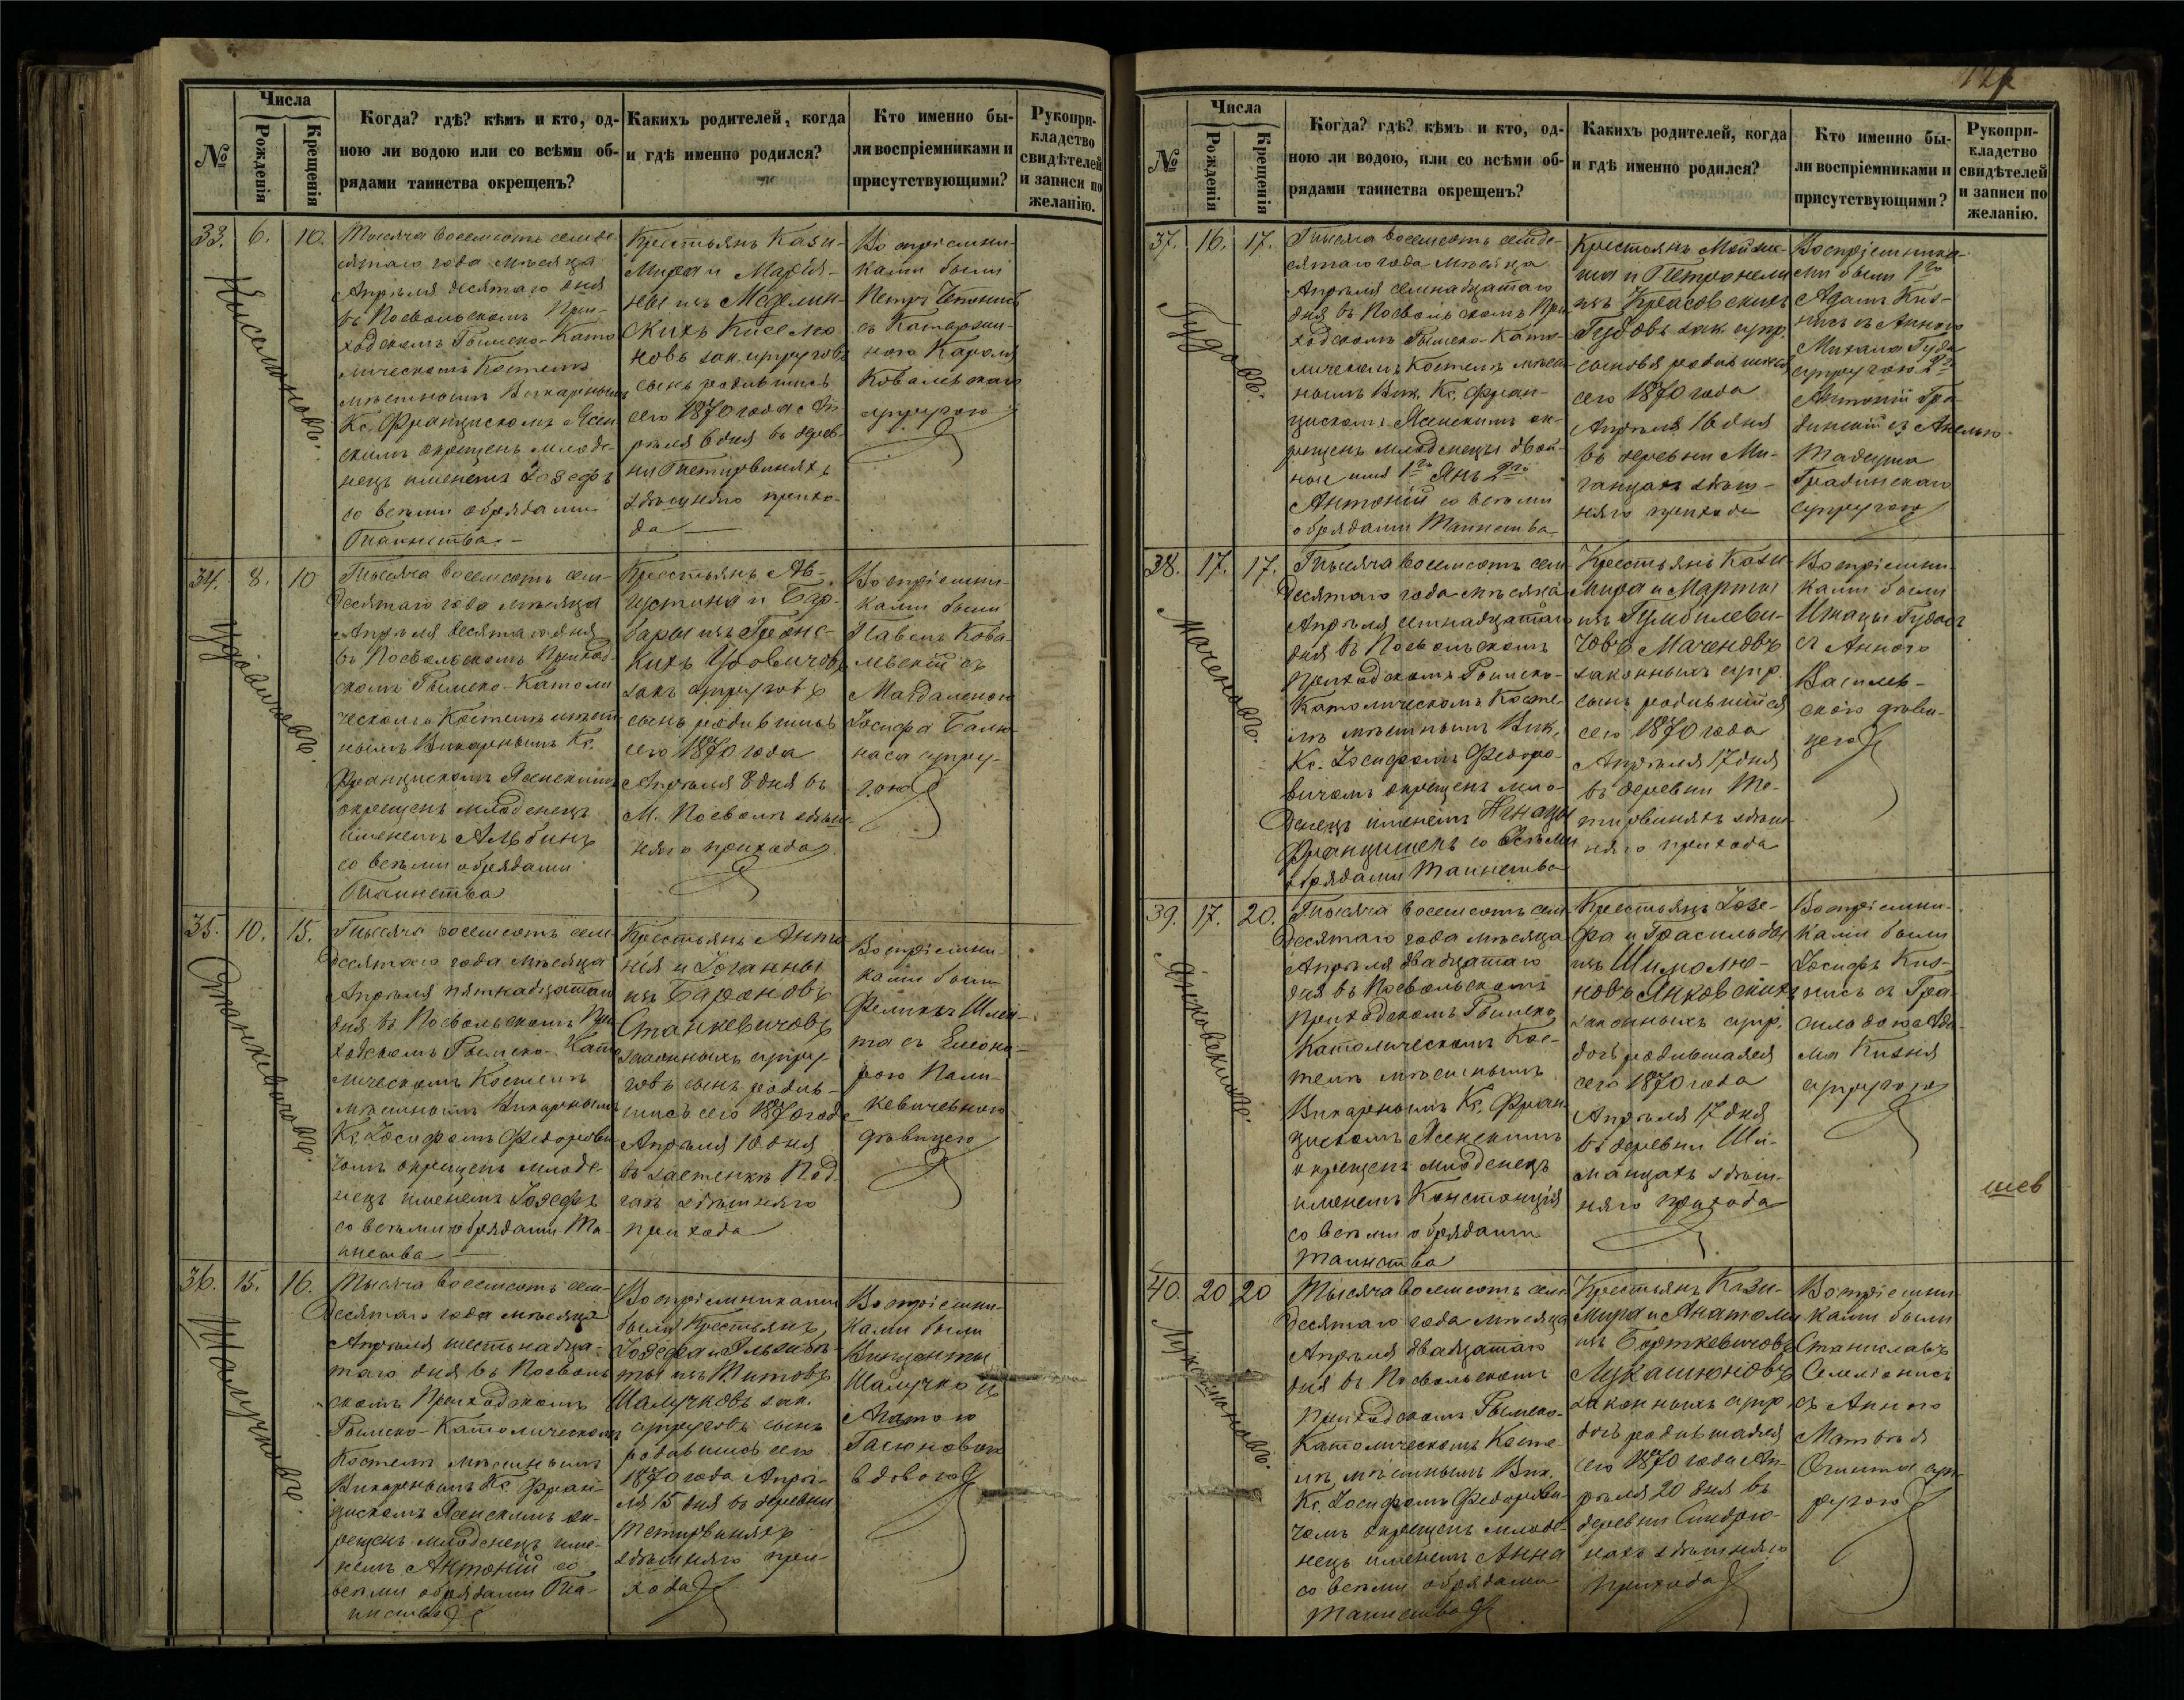 №
Числа
Рожденія
Крещенія
Когда? гдѣ? кѣмъ и кто, од-
ною ли водою или со всѣми об-
рядами таинства окрещенъ?
Какихъ родителей, когда
и гдѣ именно родился?
Кто именно бы-
ли воспріемниками и
присутствующими?
Рукопри-
кладство
свидѣтелей
и записи по
желанію.
33. 6. 10.
Тысяча восемьсотъ семьде-
сятаго года мѣсяца
Апрѣля десятаго дня
въ Посвольскомъ При-
ходскомъ Римско-Като
лическомъ Костелѣ
мѣстнымъ Викарнымъ
Кс. Францискомъ Ясен
скимъ окрещенъ младе-
нецъ именемъ Іозефъ
со всѣми обрядами
Таинства.
Крестьянъ Кази-
мира и
сынъ родившійся
сего 1870 года Ап-
рѣля 6 дня въ дерев-
ни
здѣшняго прихо-
да
Воспріемни-
ками были
Петръ
съ
Ковалевскаго
супругою
34. 8. 10
Удовичовъ.
Тысяча восемьсотъ семь-
десятаго года мѣсяца
Апрѣля десятаго дня
въ Посвольскомъ Приход-
скомъ Римско-Католи
ческомъ Костелѣ мѣст
нымъ Викарнымъ Кс.
Францискомъ Ясенскимъ
окрещенъ младенецъ
именемъ Альбинъ
со всѣми обрядами
Таинства
Крестьянъ Ав-
густина и Бар-
бары изъ
Удовичовъ
зак. супруговъ
сынъ родившійся
сего 1870 года
Апрѣля 8 дня въ
М. Посволѣ здѣш-
няго прихода
Воспріемни-
ками были
Павелъ Кова-
левскій съ
Магдаленою
Іосифа
супру-
гою
35. 10. 15.
Станкевичовъ.
Тысяча восемьсотъ семь
десятаго года мѣсяца
Апрѣля пятнадцатаго
дня въ Посвольскомъ При
ходскомъ Римско-Като
лическомъ Костелѣ
мѣстнымъ Викарнымъ
Кс. Іосифомъ Федорови
чомъ окрещенъ младе-
нецъ именемъ Іозефъ
со всѣми обрядами Та-
инства
Крестьянъ Анто
нія и Іоганны
изъ Барановъ
Станкевичовъ
законныхъ супру
говъ сынъ родив-
шійся сего 1870 года
Апрѣля 10 дня
въ застенкѣ
здѣшняго
прихода
Воспріемни-
ками были
Феликсъ
съ
дѣвицею
36. 15. 16.
Тысяча восемьсотъ семь-
десятаго года мѣсяца
Апрѣля шестьнадца-
таго дня въ Посволь
скомъ Приходскомъ
Римско-Католическомъ
Костелѣ мѣстнымъ
Викарнымъ Кс. Фран-
цискомъ Ясенскимъ ок-
рещенъ младенецъ име-
немъ Антоній со
всѣми обрядами Та-
инства
Воспріемниками
были Крестьянъ,
Іозефа и Эльжбе-
ты изъ Титовъ
зак.
супруговъ сынъ
родившійся сего
1870 года Апрѣ-
ля 15 дня въ деревни
здѣшняго при-
хода
Воспріемни-
ками были
Винценты
вдовою
№
Числа
Рожденія
Крещенія
Когда? гдѣ? кѣмъ и кто, од-
ною ли водою, или со всѣми об-
рядами таинства окрещенъ?
Какихъ родителей, когда
и гдѣ именно родился?
Кто именно бы-
ли воспріемниками и
присутствующими?
Рукопри-
кладство
свидѣтелей
и записи по
желанію.
37. 16. 17.
Гудовъ.
Тысяча восемьсотъ семьде-
сятаго года мѣсяца
Апрѣля семнадцатаго
дня въ Посвольскомъ При
ходскомъ Римско-Като-
лическомъ Костелѣ мѣст-
нымъ Вик. Кс. Фран-
цискомъ Ясенскимъ ок-
рещены младенцы двой-
ные имя 1го Янъ 2го
Антоній со всѣми
обрядами Таинства
Крестьянъ
и Петронели
изъ Красовскихъ
Гудовъ зак. супр.
сыновья родившіеся
сего 1870 года
Апрѣля 16 дня
въ деревни Ми-
ганцахъ здѣш-
няго прихода
Воспріемника-
ми были 1го
Адамъ
съ Анною
Михала Гуда
супругою 2го
Антоній Гра-
динскій съ
Тадеуша
Градинскаго
супругою
38. 17. 17.
Маченовъ.
Тысяча восемьсотъ семь
десятаго года мѣсяца
Апрѣля семнадцатаго
дня въ Посвольскомъ
Приходскомъ Римско-
Католическомъ Косте-
лѣ мѣстнымъ Вик.
Кс. Іосифомъ Федоро-
вичомъ окрещенъ мла-
денецъ именемъ Игнацы
Францишекъ со всѣми
обрядами Таинства
Крестьянъ Кази
мира и Марты
изъ Гумбилеви-
човъ Маченовъ
законныхъ супр.
сынъ родившійся
сего 1870 года
Апрѣля 17 дня
въ деревни
здѣш-
няго прихода
Воспріемни-
ками были
Игнацы
съ Анною
Василев-
скою дѣви-
цею
39. 17. 20.
Янковскихъ.
Тысяча восемьсотъ семь
десятаго года мѣсяца
Апрѣля двадцатаго
дня въ Посвольскомъ
Приходскомъ Римско
Католическомъ Кос-
телѣ мѣстнымъ
Викарнымъ Кс. Фран-
цискомъ Ясенскимъ
окрещенъ младенецъ
именемъ Констанція
со всѣми обрядами
Таинства
Крестьянъ Іозе-
фа и Грасильды
изъ Шимолю-
новъ Янковскихъ
законныхъ супр.
дочь родившаяся
сего 1870 года
Апрѣля 17 дня
въ деревни Ши-
манцахъ здѣш-
няго прихода
Воспріемни-
ками были
Іосифъ
съ Гра-
сильдою Ада-
ма
супругою
шев
40. 20 20
Лукашюновъ.
Тысяча восемьсотъ семь
десятаго года мѣсяца
Апрѣля двадцатаго
дня въ Посвольскомъ
Приходскомъ Римско-
Католическомъ Косте-
лѣ мѣстнымъ Вик.
Кс. Іосифомъ Федорови-
чомъ окрещенъ младе-
нецъ именемъ Анна
со всѣми обрядами
Таинства
Крестьянъ Кази-
мира и Анатоли
изъ Борткевичовъ
Лукашюновъ
законныхъ супр.
дочь родившаяся
сего 1870 года Ап-
рѣля 20 дня въ
деревни
здѣшняго
прихода
Воспріемни-
ками были
Станиславъ
съ Анною
Матвѣя
суп-
ругою